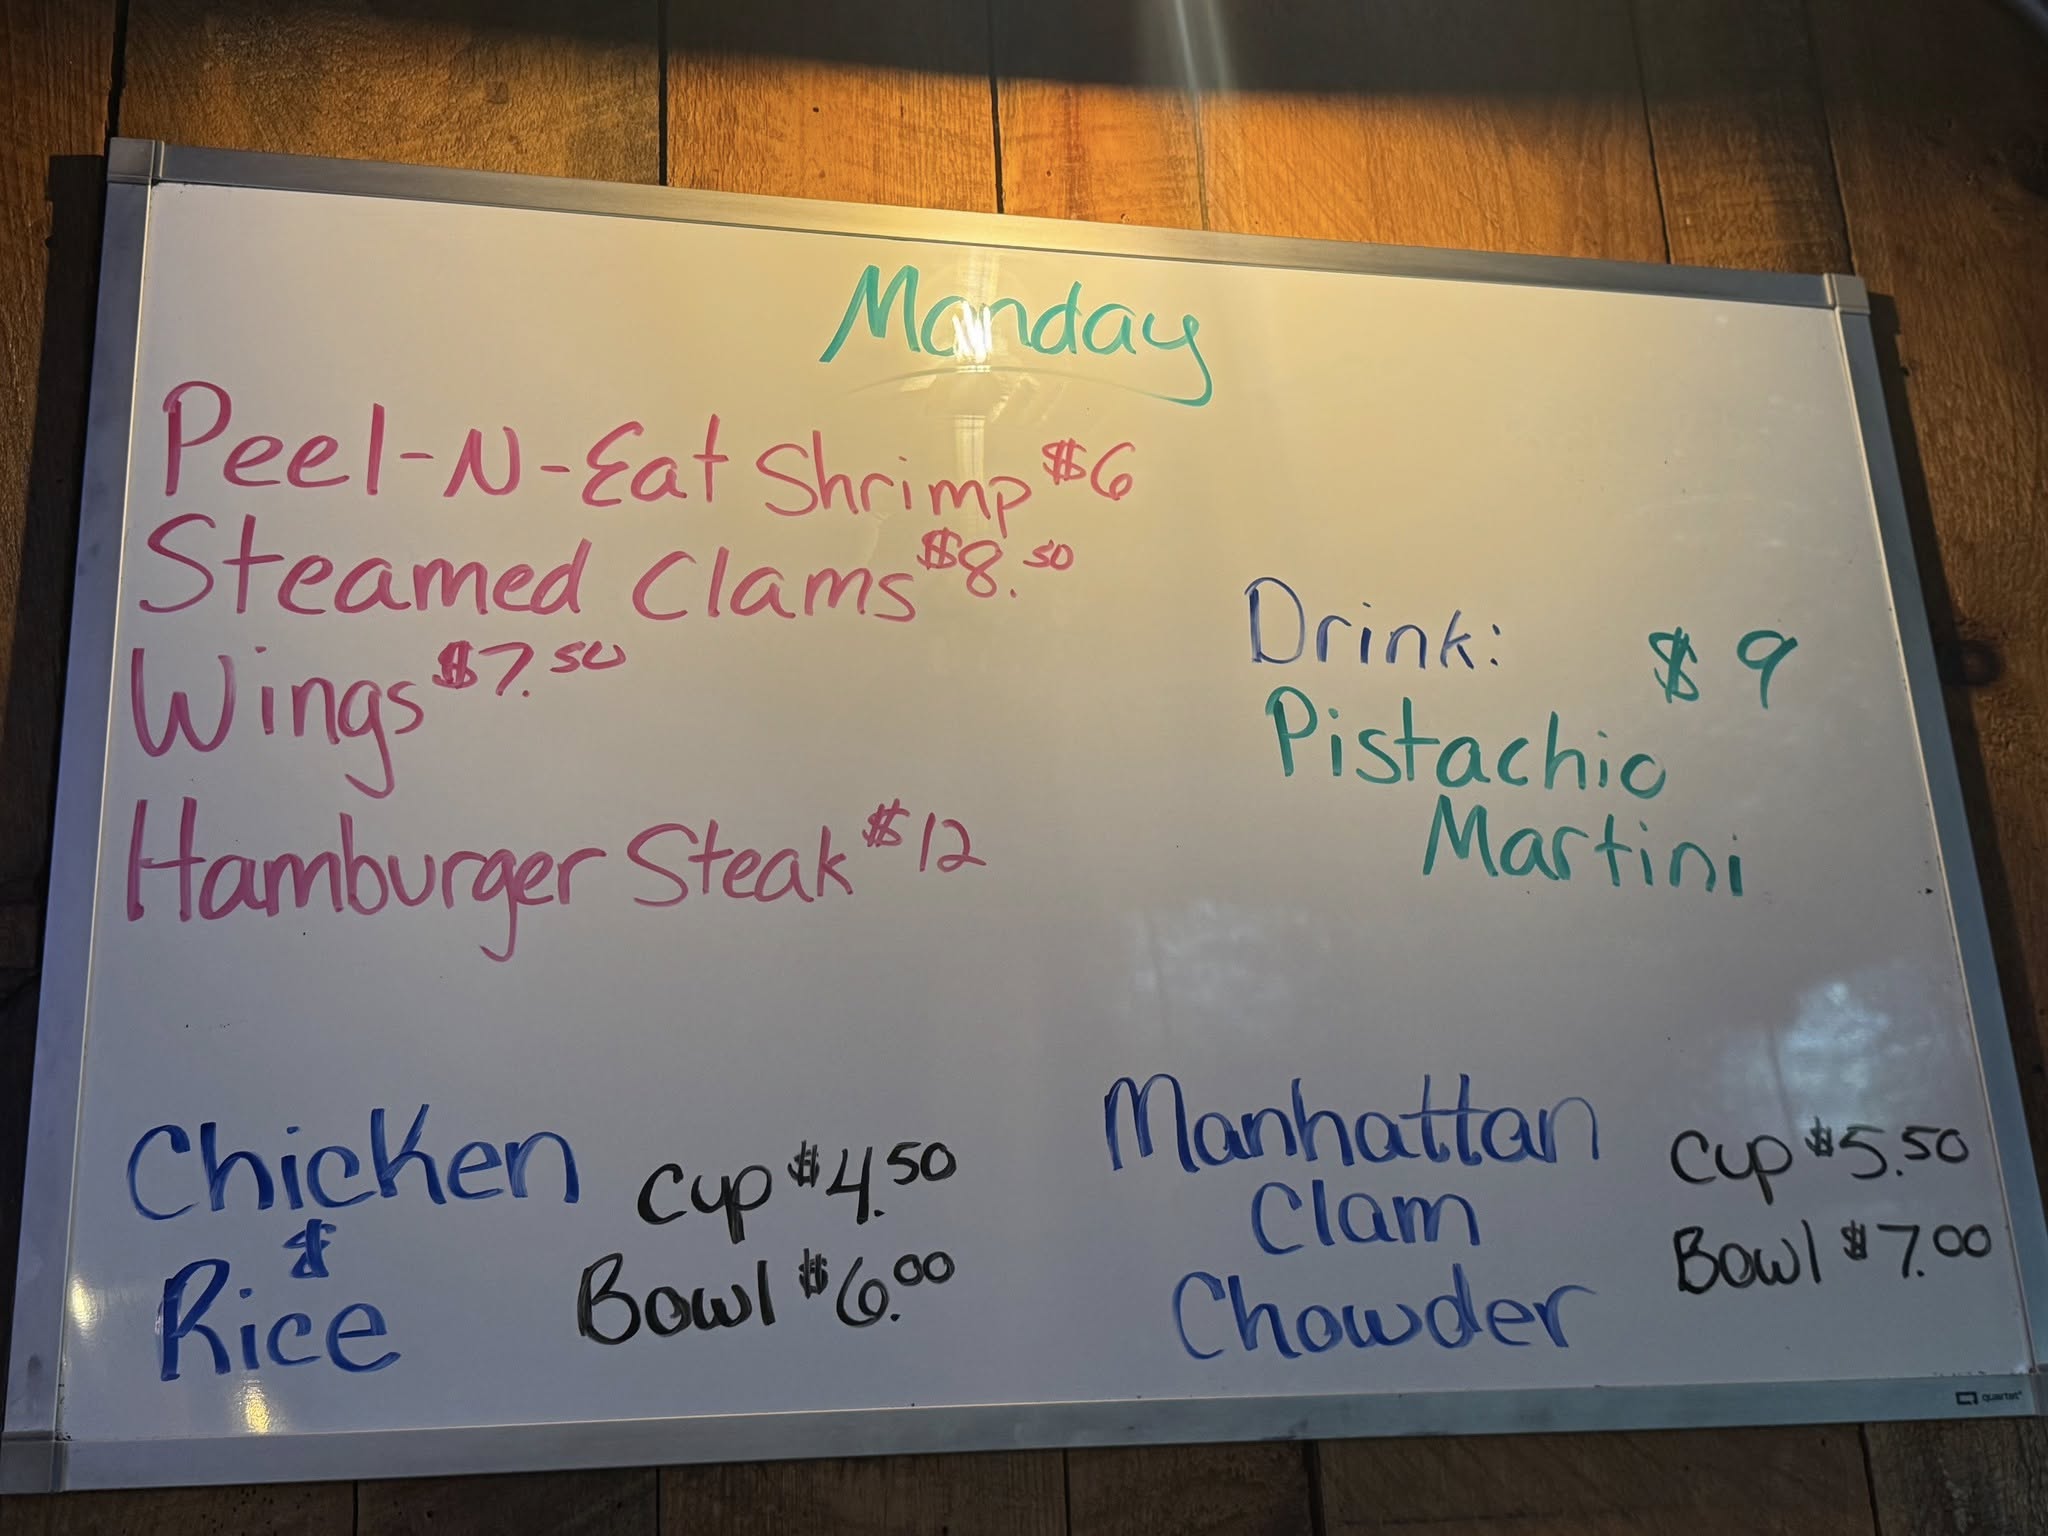 Monday
Peel-N-Eat Shrimp $6
Steamed Clams $8.50
Wings $7.50
Hamburger Steak $12
Drink: $9
Pistachio
Martini
Chicken
&
Rice
Cup $4.50
Bowl $6.00
Manhattan
Clam
Chowder
Cup $5.50
Bowl $7.00
quartet